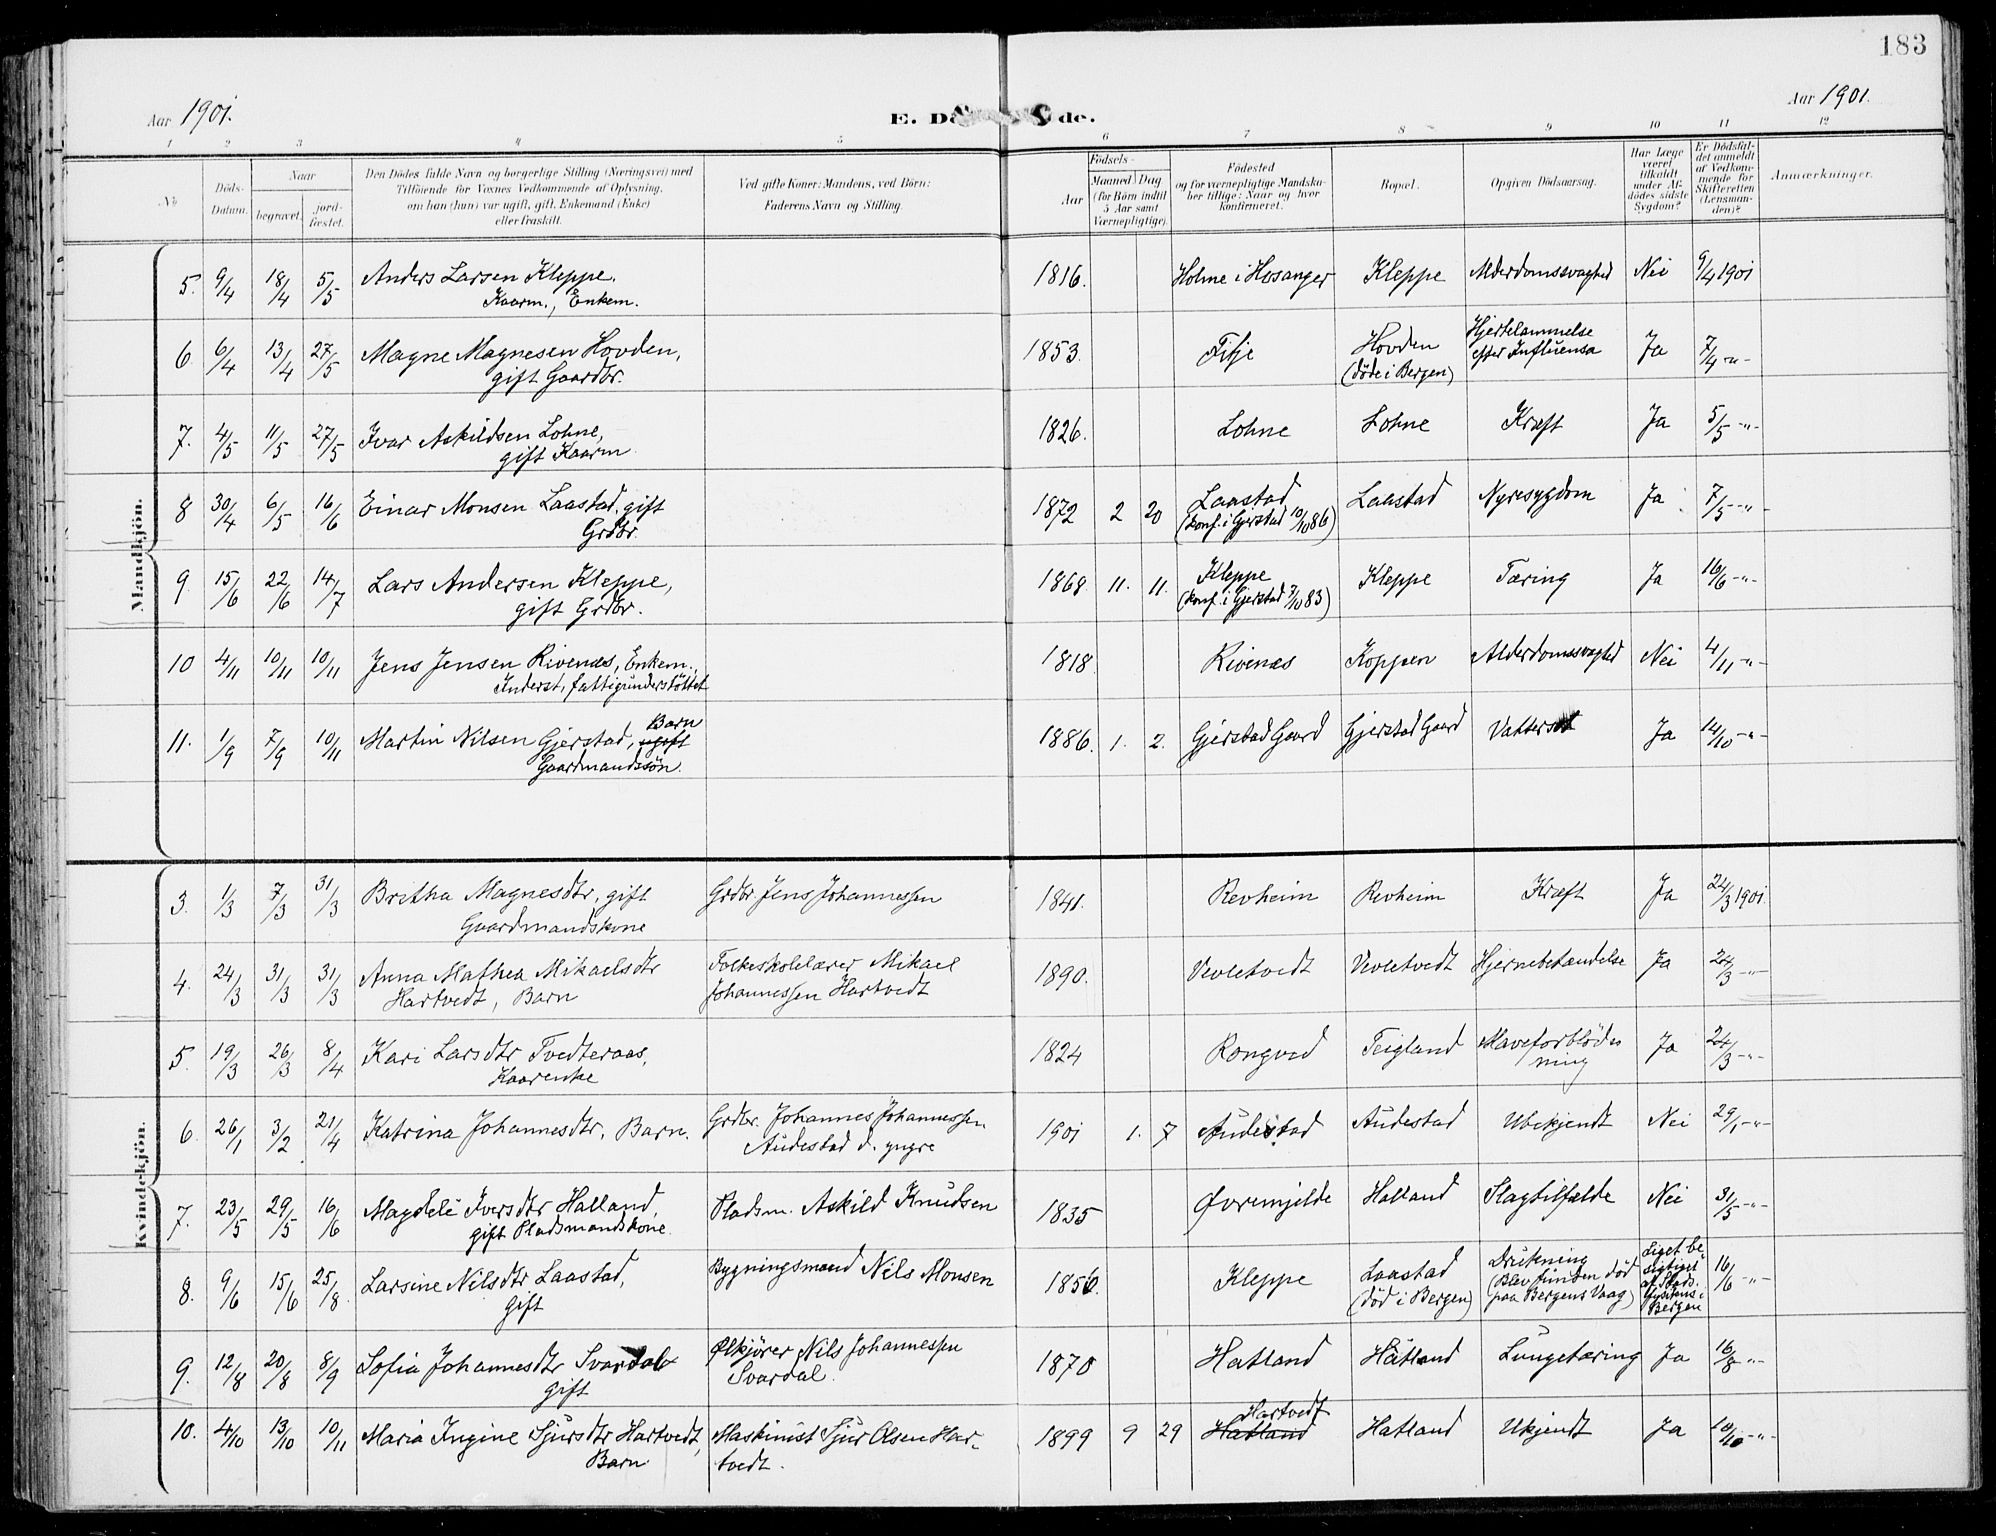 183
Aar 1901.
E. Dö de.
Aar 1901.
1 2 3 4 5 6 7 8 9 10 11 12
No
Döds-
Datum.
Naar
begravet.
jord-
fæstet.
Den Dödes fulde Navn og borgerlige Stilling (Næringsvei) med
Tilföiende for Voxnes Vedkommende af Oplysning,
om han (hun) var ugift, gift, Enkemand (Enke)
eller fraskilt.
Ved gifte Koner: Mandens, ved Börn:
Faderens Navn og Stilling.
Födsels-
Aar
Maaned Dag
(for Börn indtil
5 Aar samt
Værnepligtige).
Födested
og for værnepligtige Mandska-
ber tillige: Naar og hvor
konfirmeret.
Bopæl.
Opgiven Dödsaarsag.
Har Læge
været
tilkaldt
under Af-
dödes sidste
Sygdom?
Er Dödsfal-
det anmeldt
af Vedkom-
mende for
Skifteretten
(Lensman-
den)?
Anmærkninger.
Mandkjön.
5. 9/4 18/4 5/5 Anders Larsen Kleppe. 1816. Holme i Hosanger Kleppe Alderdomssvaghed Nei 9/4 1901
Kaarm., Enkem.
6. 6/4 13/4 27/5 Magne Magnesen Hovden, 1853. Fitje Hovden Hjertelammelse Ja 7/4 -"-
gift Gaardbr. (döde i Bergen) efter Influensa
7. 4/5 11/5 27/5 Ivar Askildsen Lohne, 1826. Lohne Lohne Kræft Ja 5/5 -"-
gift Kaarm.
8 30/4 6/5 16/6 Einar Monsen Laastad, gift 1872 2 20 Laastad Laastad Nyresygdom Ja 7/5 -"-
Grdbr. (konf. i Gjerstad 10/10 86)
9. 15/6 22/6 14/7 Lars Andersen Kleppe, 1868 11. 11. Kleppe Kleppe Tæring Ja 16/6 -"-
gift Grdbr. (konf. i Gjerstad 7/10 83)
10 4/11 10/11 10/11 Jens Jensen Rivenæs, Enkem., 1818 Rivenæs Koppen Alderdomssvaghed Nei 4/11 -"-
Inderst, fattigunderstöttet
11. 1/9 7/9 10/11 Martin Nilsen Gjerstad, ugift Barn 1886. 1. 2. Gjerstad Gaard Gjerstad Gaard Vattersot Ja 14/10 -"-
Gaardmandssön.
Kvindekjön.
3. 1/3 7/3 31/3 Britha Magnesdtr, gift Grdbr Jens Johannessen 1841. Revheim Revheim Kræft Ja 24/3 1901.
Gaardmandskone
4. 24/3 31/3 31/3 Anna Mathea Mikaelsdtr Folkeskolelærer Mikael 1890. Vevletvedt Vevletvedt Hjernebetændelse Ja 24/3 -"-
Hartvedt, Barn Johannessen Hartvedt
5. 19/3 26/3 8/4 Kari Larsdtr Tvedteraas, 1824 Rongved Teigland Maveforblöd- Ja 24/3 -"-
Kaarenke ning
6. 26/1 3/2 21/4 Katrina Johannesdtr, Barn. Grdbr. Johannes Johannessen 1901 1. 7 Audestad Audestad Ubekjendt Nei 29/1 -"-
Audestad d. yngre
7. 23/5 29/5 16/6 Magdeli Iversdtr Halland, Pladsm. Askild Knudsen 1835 Øvremjelde Halland Slagtilfælde Nei 31/5 -"-
gift Pladsmandskone.
8. 9/6 15/6 25/8 Larsine Nilsdtr Laastad, Bygningsmand Nils Monsen 1856. Kleppe Laastad Drukning Liget be- 16/6 -"-
gift (död i Bergen) (Blev funden död sigtiget
paa Bergens Vaag) af Stads-
fysikus i
Bergen
9. 12/8 20/8 8/9 Sofia Johannesdtr Svardal Ølkjörer Nils Johannessen 1870 Hatland Hatland Lungetæring Ja 16/8 -"-
gift Svardal.
10. 4/10 13/10 10/11 Maria Ingine Sjursdtr Hartvedt, Maskinist Sjur Olsen Har- 1899 9 29 Hatland Hartvedt Hatland Ukjendt Ja 10/10 -"-
Barn tvedt.